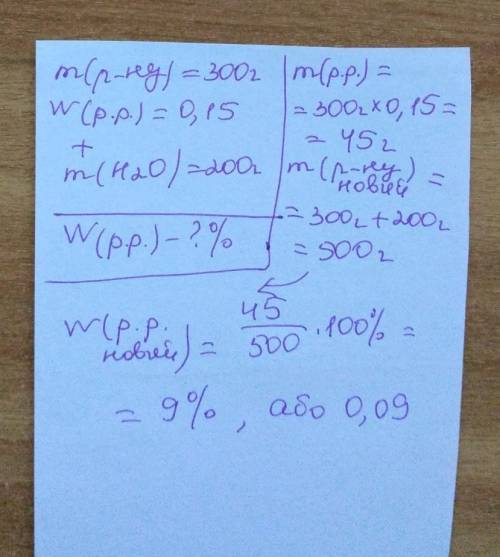 m(р-ну) = 300г
W(р.р.) = 0,15
+
m(H2O) = 200г
W(р.р.) - ? %
m(р.р.) =
= 300г × 0,15 =
= 45г
m(р-ну новий) =
= 300г + 200г
= 500г
W(р.р. новий) = 45/500 · 100% =
= 9%, або 0,09